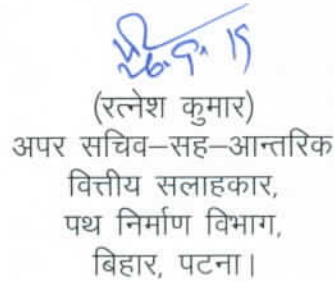 26.9.19
(रत्नेश कुमार)
अपर सचिव–सह–आन्तरिक
वित्तीय सलाहकार,
पथ निर्माण विभाग,
बिहार, पटना।